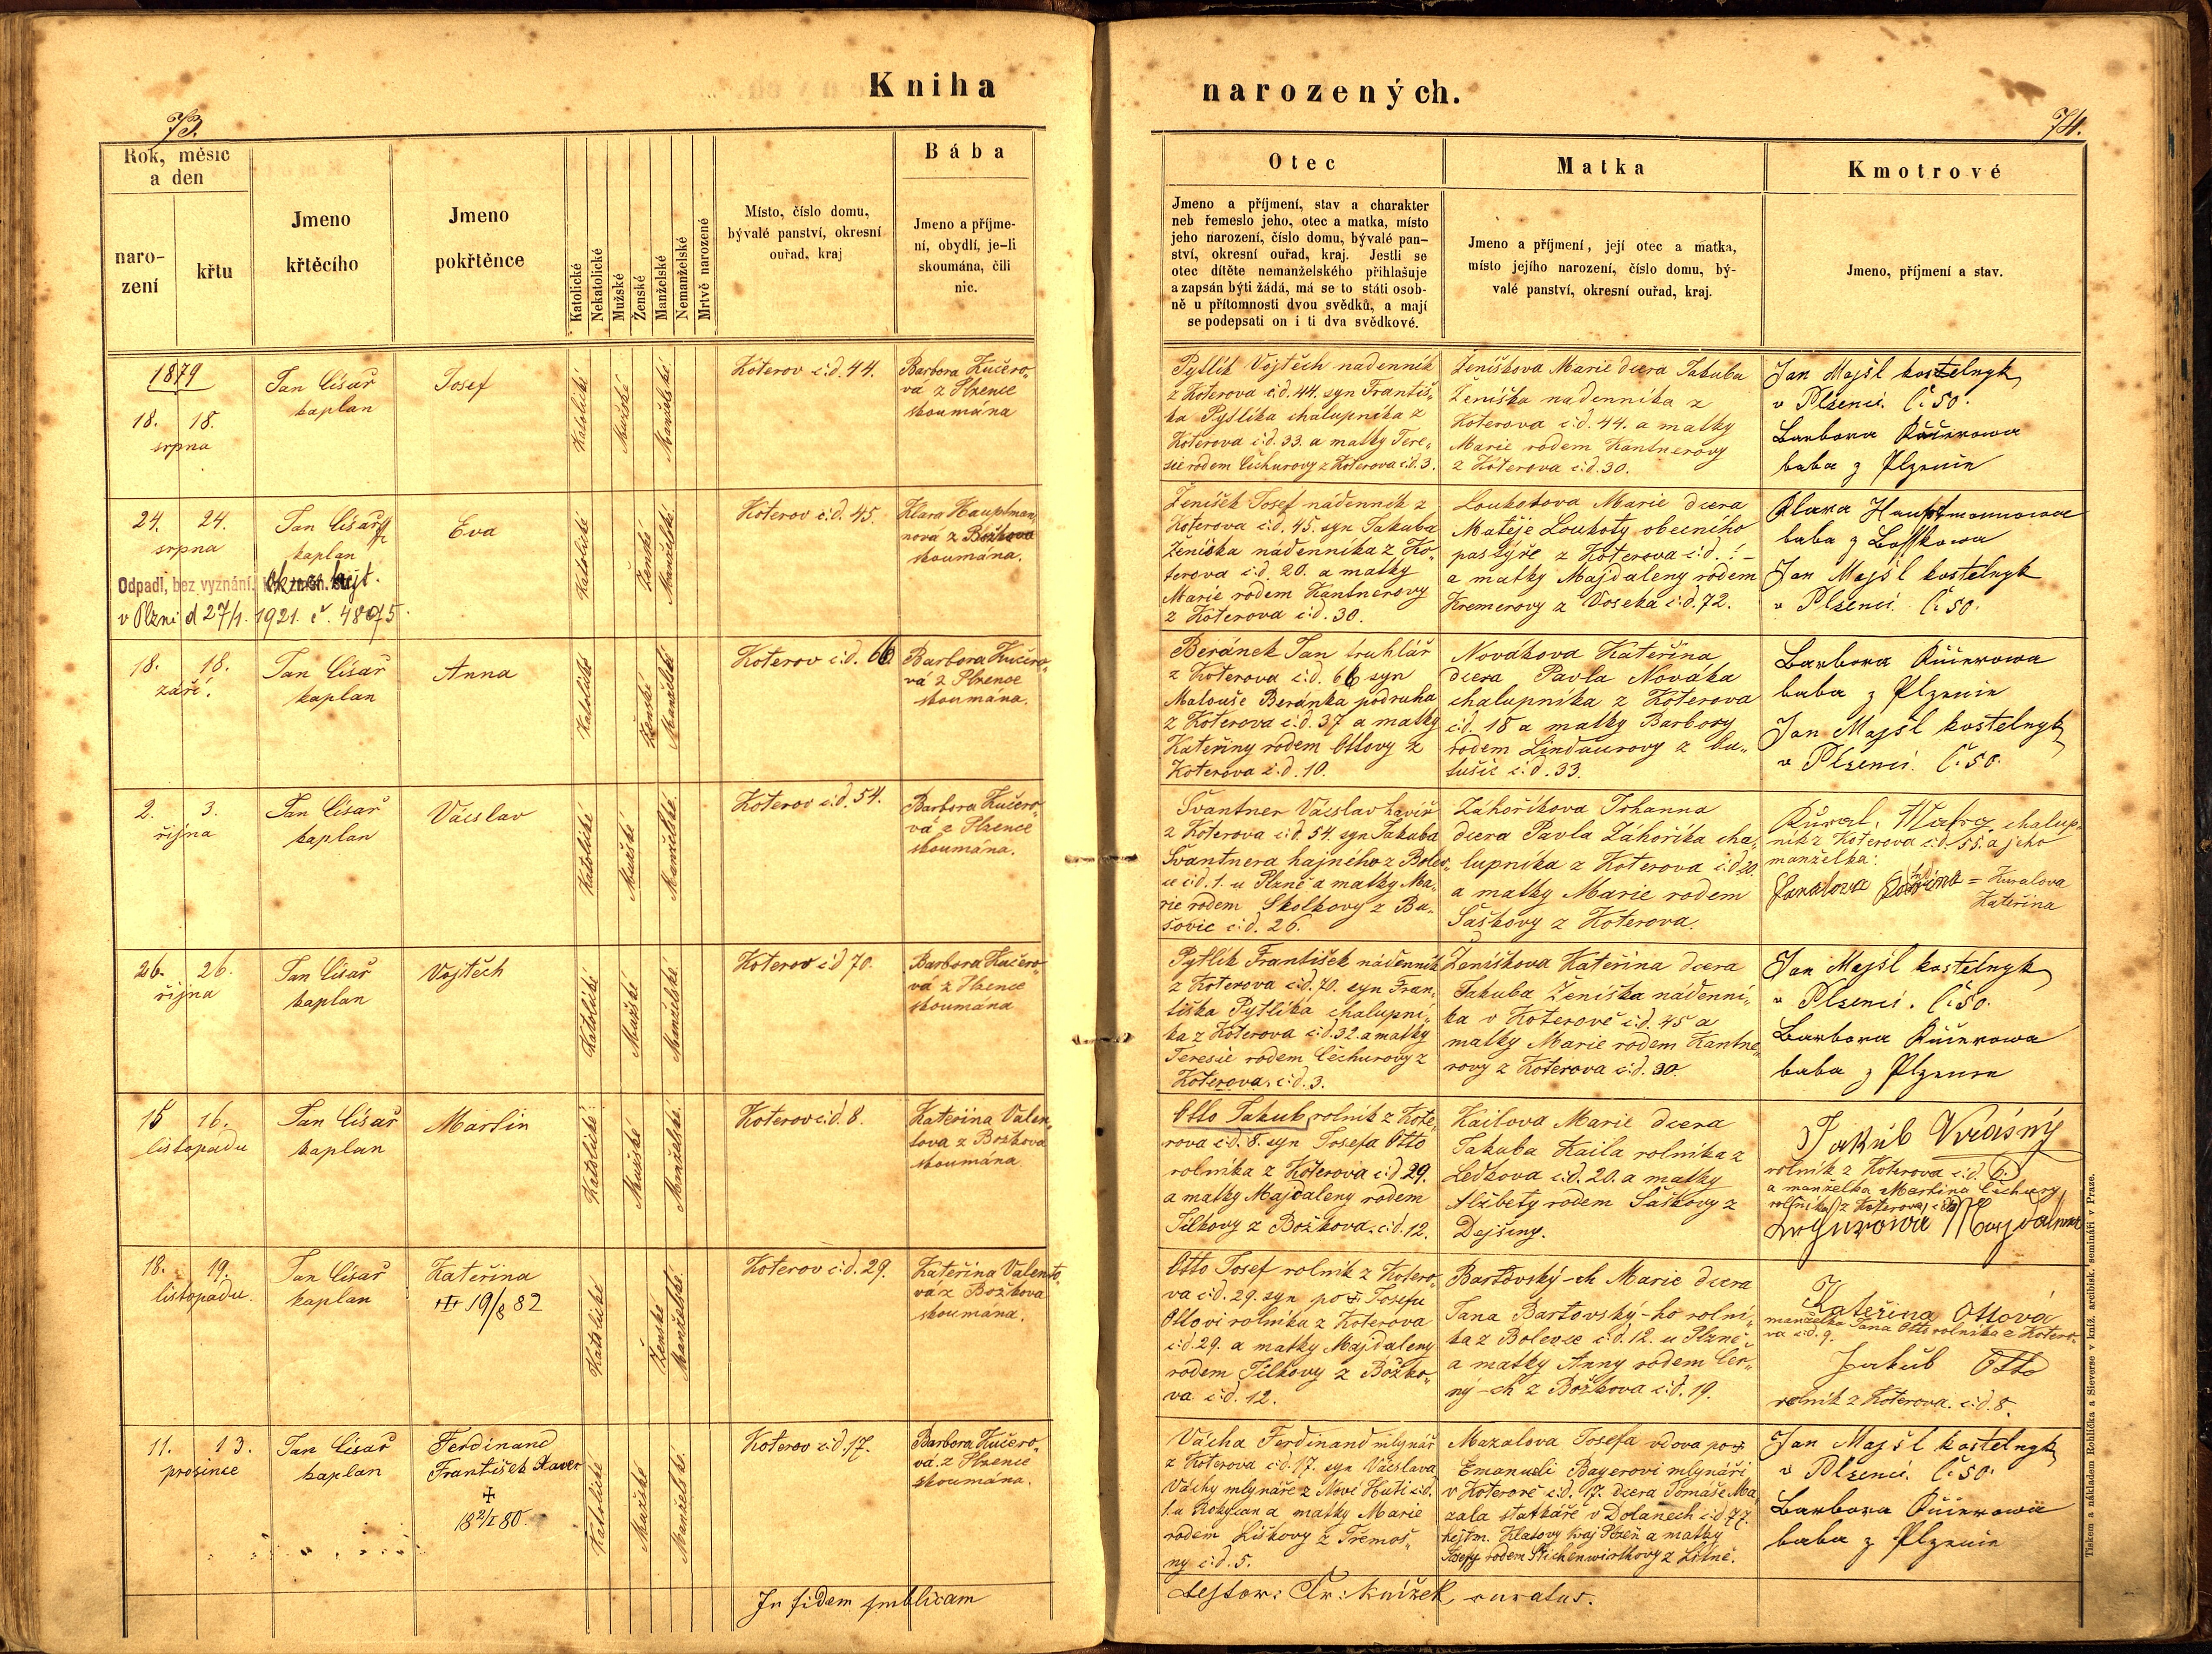 Kniha
narozených.
73.
74.
Rok, měsíc
a den
naro-
zení
křtu
Jmeno
křtěcího
Jmeno
pokřtěnce
Katolické
Nekatolické
Mužské
Ženské
Manželské
Nemanželské
Mrtvě narozené
Místo, číslo domu,
bývalé panství, okresní
ouřad, kraj
Bába
Jmeno a příjme-
ní, obydlí, je-li
skoumána, čili
nic.
Otec
Jmeno a příjmení, stav a charakter
neb řemeslo jeho, otec a matka, místo
jeho narození, číslo domu, bývalé pan-
ství, okresní ouřad, kraj. Jestli se
otec dítěte nemanželského přihlašuje
a zapsán býti žádá, má se to státi osob-
ně u přítomnosti dvou svědků, a mají
se podepsati on i ti dva svědkové.
Matka
Jmeno a příjmení, její otec a matka,
místo jejího narození, číslo domu, bý-
valé panství, okresní ouřad, kraj.
Kmotrové
Jmeno, příjmení a stav.
1879
18. 18.
srpna
Jan Císař
kaplan
Josef
Katolické
Mužské
Manželské
Koterov č:d. 44.
Barbora Kučero-
vá z Plzence
skoumána
Pytlík Vojtěch nádenník
z Koterova č:d. 44. syn Františ-
ka Pytlíka chalupníka z
Koterova č:d. 33. a matky Tere-
sie rodem Čechurovy z Koterova č:d. 3.
Ženíškova Marie dcera Jakuba
Ženíška nádenníka z
Koterova č:d. 44. a matky
Marie rodem Kantnerovy
z Koterova č:d. 30.
Jan Majšl kostelnyk
v Plzenci. č. 50.
Barbora Kučerowa
baba z Plzence
24. 24.
srpna
Jan Císař
kaplan
Eva
Katolické
Ženské
Manželské
Koterov č:d. 45.
Klara Hauptman-
nová z Božkova
skoumána.
Odpadl, bez vyznání.
v Plzni d 27/1. 1921. č. 48075.
Ženíšek Josef nádenník z
Koterova č:d. 45. syn Jakuba
Ženíška nádenníka z Ko-
terova č:d. 20. a matky
Marie rodem Kantnerovy
z Koterova č:d. 30.
Loukotova Marie dcera
Matěje Loukoty obecního
pastýře z Koterova č:d. : –
a matky Majdaleny rodem
Kremerovy z Voseka č:d. 72.
Klara Hauptmannowa
baba z Boškowa
Jan Majšl kostelnyk
v Plzenci č. 50.
18. 18.
září.
Jan Císař
kaplan
Anna
Katolické
Ženské
Manželské
Koterov č:d. 66
Barbora Kučero-
vá z Plzence
skoumána.
Beránek Jan truhlář
z Koterova č:d. 66 syn
Matouše Beránka podruha
z Koterova č:d. 37 a matky
Kateřiny rodem Ottovy z
Koterova č.d. 10.
Novákova Kateřina
dcera Pavla Nováka
chalupníka z Koterova
č:d. 18 a matky Barbory
rodem Lindaurovy z Lu-
tušic č:d. 33.
Barbora Kučerowa
baba z Plzence
Jan Majšl kostelnyk
v Plzenci. č. 50.
2. 3.
října
Jan Císař
kaplan
Václav
Katolické
Mužské
Manželské
Koterov č:d. 54.
Barbora Kučero-
vá z Plzence
skoumána.
Švantner Václav havíř
z Koterova č:d. 54. syn Jakuba
Švantnera hajného z Bolev-
ce č:d. 1. u Plzně a matky Ma-
rie rodem Skolkovy z Bu-
šovic č:d. 26.
Záhoříkova Johanna
dcera Pavla Záhoříka cha-
lupníka z Koterova č:d 20.
a matky Marie rodem
Šaškovy z Koterova.
chalup-
ník z Koterova č:d. 55. a jeho
manželka:
= Kuralova
Kateřina
26. 26.
října
Jan Císař
kaplan
Vojtěch
Katolické
Mužské
Manželské
Koterov č:d 70.
Barbora Kučero-
vá z Plzence
skoumána
Pytlík František nádenník
z Koterova č:d. 70. syn Fran-
tiška Pytlíka chalupní-
ka z Koterova č:d. 32. a matky
Teresie rodem Čechurovy z
Koterova. č:d. 3.
Ženíškova Kateřina dcera
Jakuba Ženíška nádenní-
ka v Koterově č:d. 45 a
matky Marie rodem Kantne-
rovy z Koterova č:d. 30.
Jan Majšl kostelnyk
v Plzenci. č. 50.
Barbora Kučerowa
baba z Plzence
15 16.
listopadu
Jan Císař
kaplan
Martin
Katolické
Mužské
Manželské
Koterov č:d. 8.
Kateřina Valen-
tova z Božkova
skoumána
Otto Jakub, rolník z Kote-
rova č:d. 8. syn Josefa Otto
rolníka z Koterova č:d 29.
a matky Majdaleny rodem
Tílkovy z Božkova. č:d. 12.
Kailova Marie dcera
Jakuba Kaila rolníka z
Ledkova č:d. 20. a matky
Alžbety rodem Šaškovy z
Dejšiny.
Jakub Krásný
rolník z Koterova č:d. 6.
a manželka Martina Čechury
rolníka z Koterova
Majdalena
18. 19.
listopadu.
Jan Císař
kaplan
Kateřina
19/8 82
Katolické
Ženské
Manželské
Koterov č:d. 29.
Kateřina Valento-
vá z Božkova
skoumána.
Otto Josef rolník z Kotero-
va č:d. 29. syn po Josefu
Ottovi rolníku z Koterova
č:d. 29. a matky Majdaleny
rodem Tílkovy z Božko-
va č:d. 12.
Bartovský-ch Marie dcera
Jana Bartovský-ho rolní-
ka z Bolevce č:d. 12. u Plzně
a matky Anny rodem Čer-
ný-ch z Božkova č:d. 19.
Kateřina Ottová
manželka Jana Otto rolníka z Kotero-
va č:d. 9.
Jakub Otto
rolník z Koterova. č:d. 8.
11. 13.
prosince
Jan Císař
kaplan
Ferdinand
František Xaver
✝
18 2/I 80.
Katolické
Mužské
Manželské
Koterov č:d. 17.
Barbora Kučero-
vá z Plzence
skoumána.
Vácha Ferdinand mlynář
z Koterova č:d. 17. syn Václava
Váchy mlynáře z Nové Huti č:d.
1. u Rokycan a matky Marie
rodem Liškovy z Třemoš-
ny č:d. 5.
Mazalova Josefa vdova po
Emanueli Bayerovi mlynáři
v Koterově č:d. 17. dcera Tomáše Ma-
zala statkáře v Dolanech č:d 77.
hejtm. Klatovy kraj Plzeň a matky
Josefy rodem Stichenwirthovy z Litně.
Jan Majšl kostelnyk
v Plzenci. č. 50.
Barbora Kučerowa
baba z Plzence
In fidem publicam
testor: Fr: Knížek, curatus.
Tiskem a nákladem Rohlíčka a Sieverse v kníž. arcibisk. semináři v Praze.